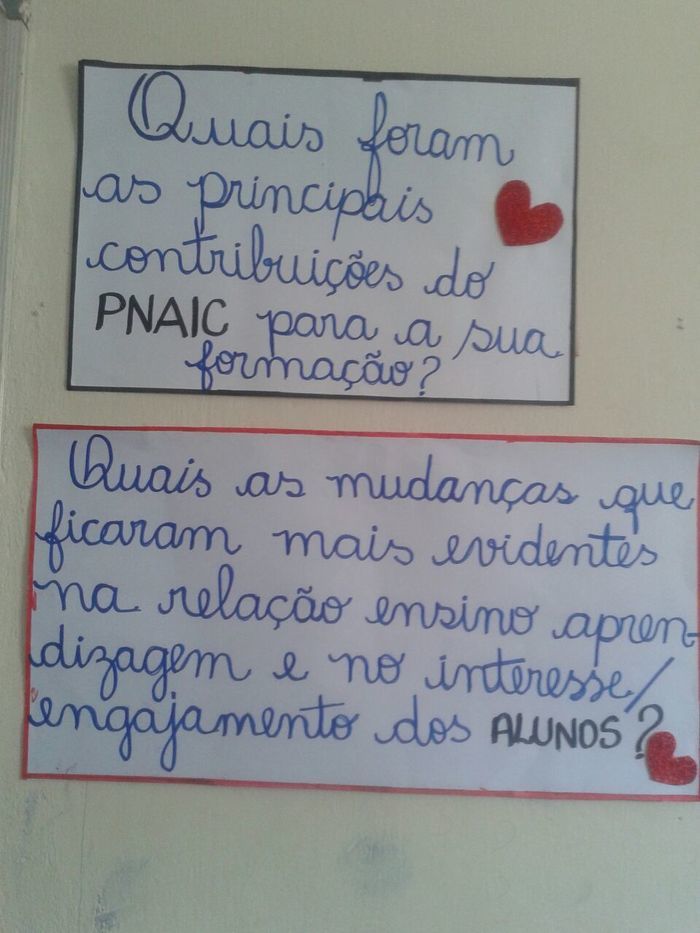 Quais foram
as principais
contribuições do
PNAIC para a sua
formação?
Quais as mudanças que
ficaram mais evidentes
na relação ensino apren-
dizagem e no interesse/
engajamento dos ALUNOS?